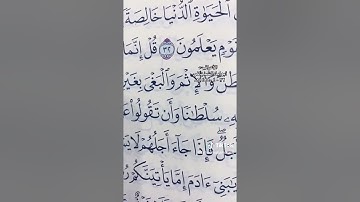 ٱلْحَيَوٰةِ ٱلدُّنْيَا خَالِصَةً
لِقَوْمٍ يَعْلَمُونَ ٣٢ قُلْ إِنَّمَا
بَطَنَ وَٱلْإِثْمَ وَٱلْبَغْىَ بِغَيْرِ
بِهِۦ سُلْطَٰنًا وَأَن تَقُولُوا۟ عَلَى
أَجَلٌ فَإِذَا جَآءَ أَجَلُهُمْ لَا
يَٰبَنِىٓ ءَادَمَ إِمَّا يَأْتِيَنَّكُمْ